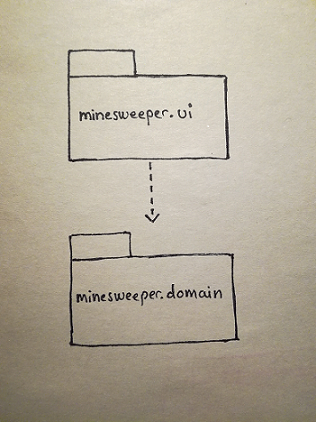 minesweeper.ui
minesweeper.domain